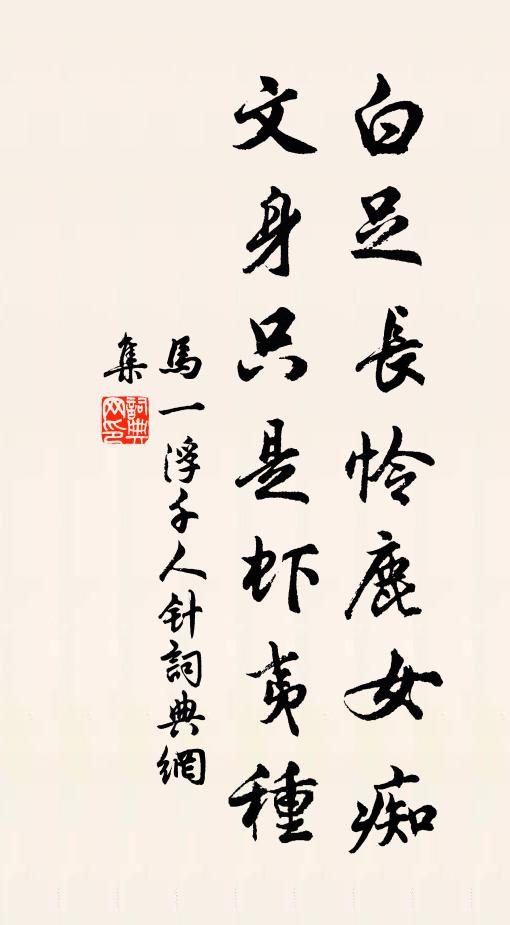 白足長怜鹿女痴
文身只是虾夷種
馬一浮千人针詞典網
集
詞典
网印